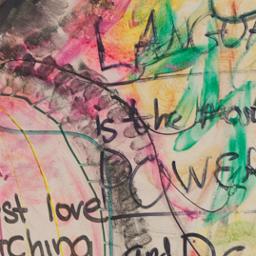 LANGUA
is the
POWER
st love
tching
and D